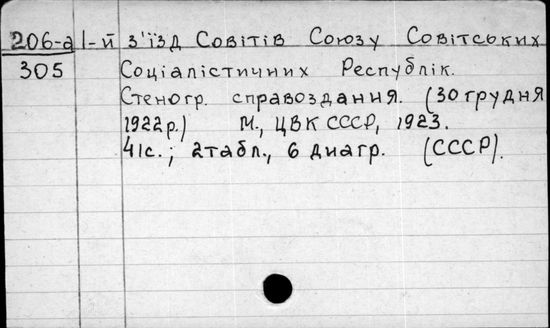 206-а 1-й з'їзд Совітів Союзу Совітських
305 Соціялістичних Республік.
Стеногр. справоздання. (30 грудня
1922р.) М., ЦВК СССР, 1923.
41с.; 2табл., 6 диагр. (СССР).